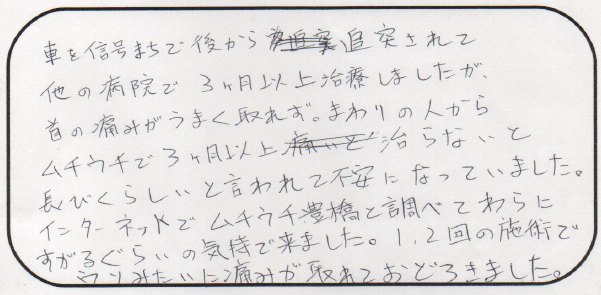 車を信号まちで後から追突されて
他の病院で3ヶ月以上治療しましたが、
首の痛みがうまく取れず。まわりの人から
ムチウチで3ヶ月以上治らないと
長びくらしいと言われて不安になっていました。
インターネットでムチウチ豊橋と調べてわらに
すがるぐらいの気持で来ました。1,2回の施術で
ウソみたいに痛みが取れておどろきました。